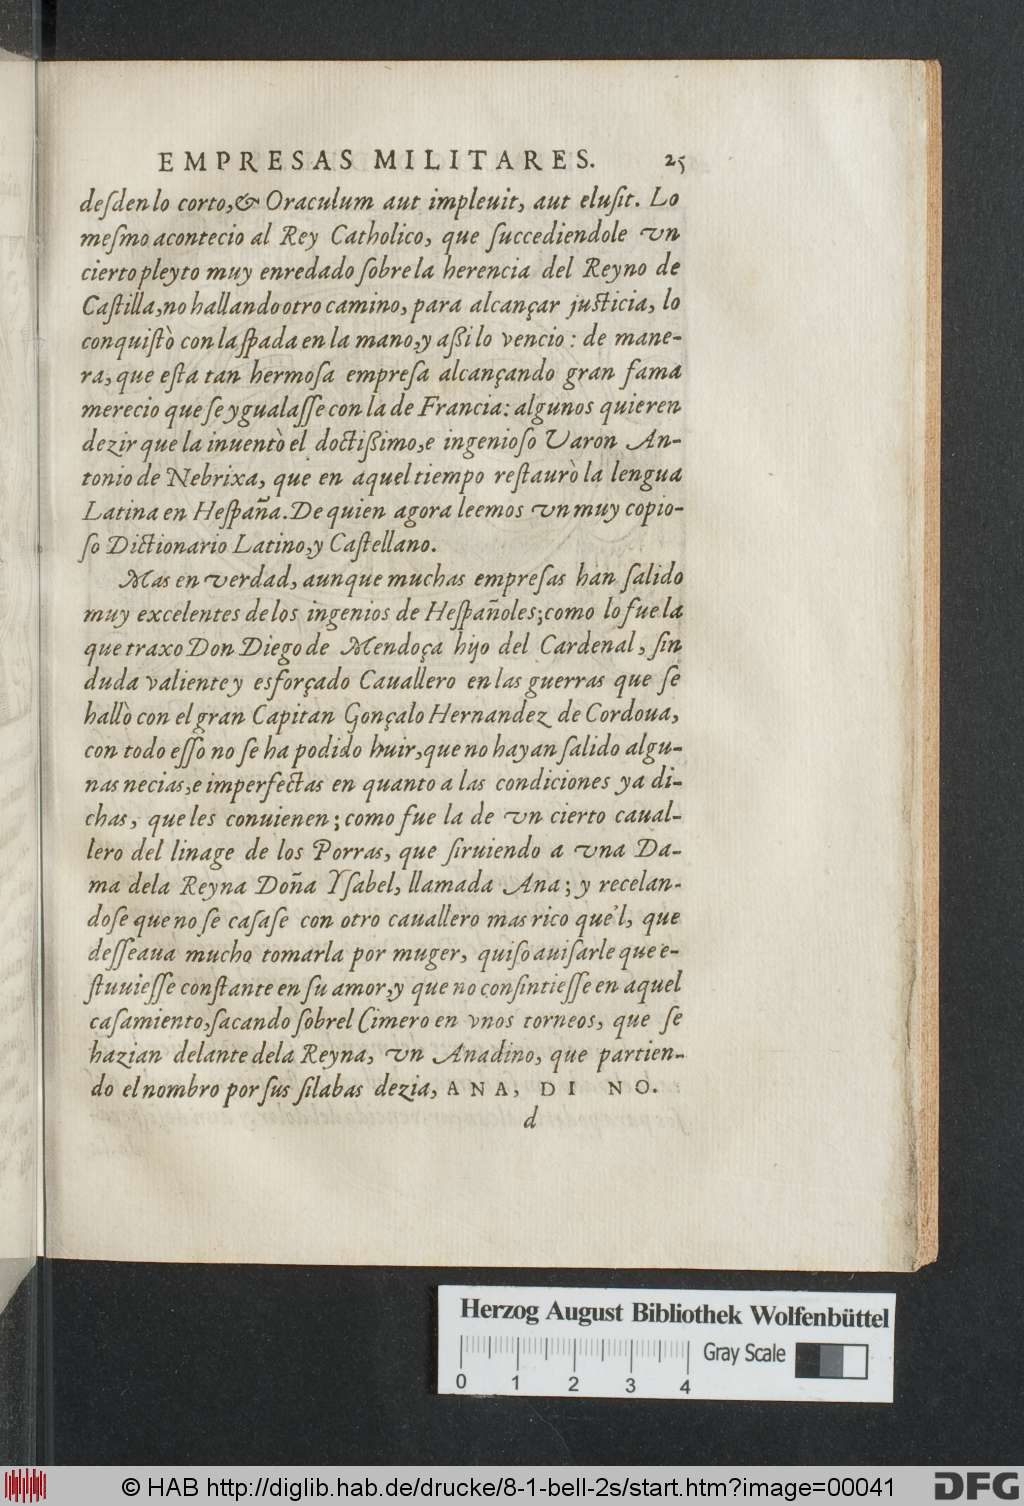 EMPRESAS MILITARES. 25
desden lo corto, & Oraculum aut impleuit, aut elusit. Lo
mesmo acontecio al Rey Catholico, que succediendole vn
cierto pleyto muy enredado sobre la herencia del Reyno de
Castilla, no hallando otro camino, para alcançar justicia, lo
conquistò con laspada en la mano, y aßi lo vencio : de mane-
ra, que esta tan hermosa empresa alcançando gran fama
merecio que se ygualasse con la de Francia: algunos quieren
dezir que la inuentò el doctißimo, e ingenioso Varon An-
tonio de Nebrixa, que en aquel tiempo restaurò la lengua
Latina en Hespaña. De quien agora leemos vn muy copio-
so Dictionario Latino, y Castellano.
Mas en verdad, aunque muchas empresas han salido
muy excelentes de los ingenios de Hespañoles; como lo fue la
que traxo Don Diego de Mendoça hijo del Cardenal, sin
duda valiente y esforçado Cauallero en las guerras que se
hallò con el gran Capitan Gonçalo Hernandez de Cordoua,
con todo esso no se ha podido huir, que no hayan salido algu-
nas necias, e imperfectas en quanto a las condiciones ya di-
chas, que les conuienen; como fue la de vn cierto caual-
lero del linage de los Porras, que siruiendo a vna Da-
ma dela Reyna Doña Ysabel, llamada Ana; y recelan-
dose que no se casase con otro cauallero mas rico que'l, que
desseaua mucho tomarla por muger, quiso auisarle que e-
stuuiesse constante en su amor, y que no consintiesse en aquel
casamiento, sacando sobrel Cimero en vnos torneos, que se
hazian delante dela Reyna, vn Anadino, que partien-
do el nombro por sus silabas dezia, ANA, DI NO.
d
Herzog August Bibliothek Wolfenbüttel
0 1 2 3 4 Gray Scale
© HAB http://diglib.hab.de/drucke/8-1-bell-2s/start.htm?image=00041 DFG